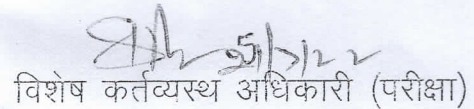 विशेष कर्तव्यस्थ अधिकारी (परीक्षा)